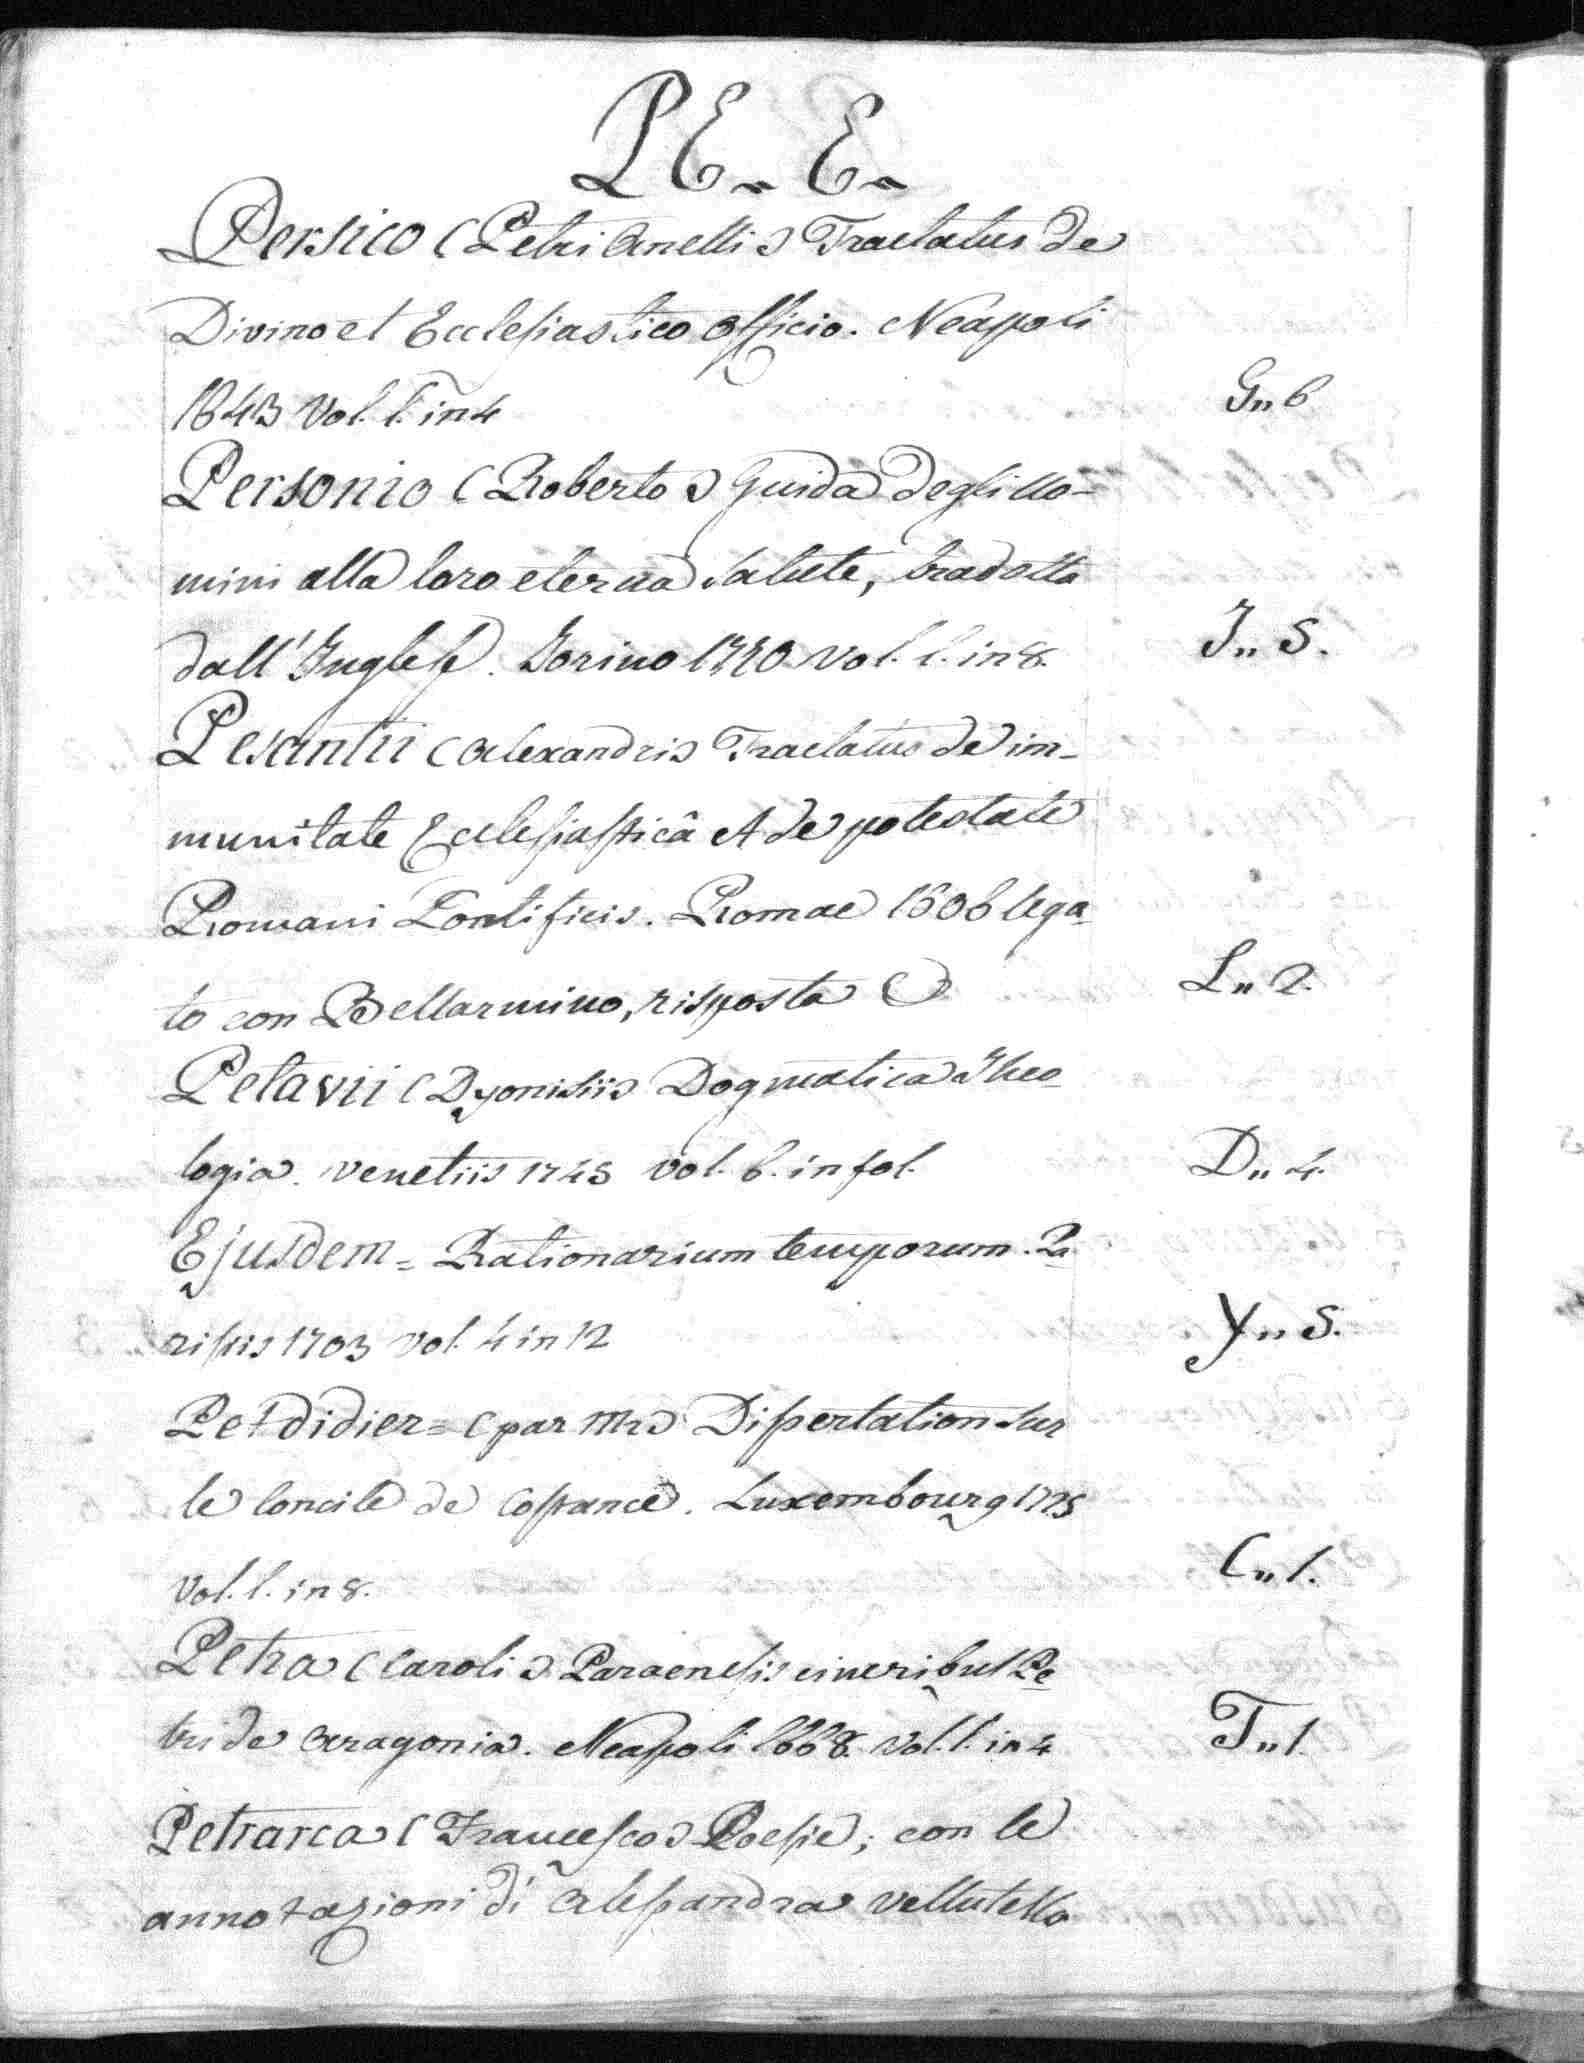 PE. E.
Persico (Petri Anelli) Tractatus de
Divino et Ecclesiastico officio. Neapoli
1643 Vol. 1. in 4 G,, 6
Personio (Roberto) Guida degli Uo-
mini alla loro eterna Salute, tradotta
dall' Inglese. Torino 1720 vol. 1. in 8. I,, 5.
Pesantii (Alexandri) Tractatus de im-
munitate Ecclesiasticâ et de potestate
Romani Pontificis. Romae 1606 lega-
to con Bellarmino, risposta & L,, 2.
Petavii (Dyonisii) Dogmatica Theo-
logia. venetiis 1745 vol. 6. in fol. D,, 4.
Ejusdem = Rationarium temporum. Pa-
risiis 1703 vol. 4 in 12 Y,, 5.
Petdidier = (par Mr) Dissertation sur
le Concile de Costance. Luxembourg 1725
vol. 1. in 8. C,, 1.
Petra (Caroli) Paraenesis cineribus Pe-
tri de Aragonia. Neapoli 1668. vol. 1. in 4 T,, 1.
Petrarca (Francesco) Poesie; con le
annotazioni di Alessandra vellutello